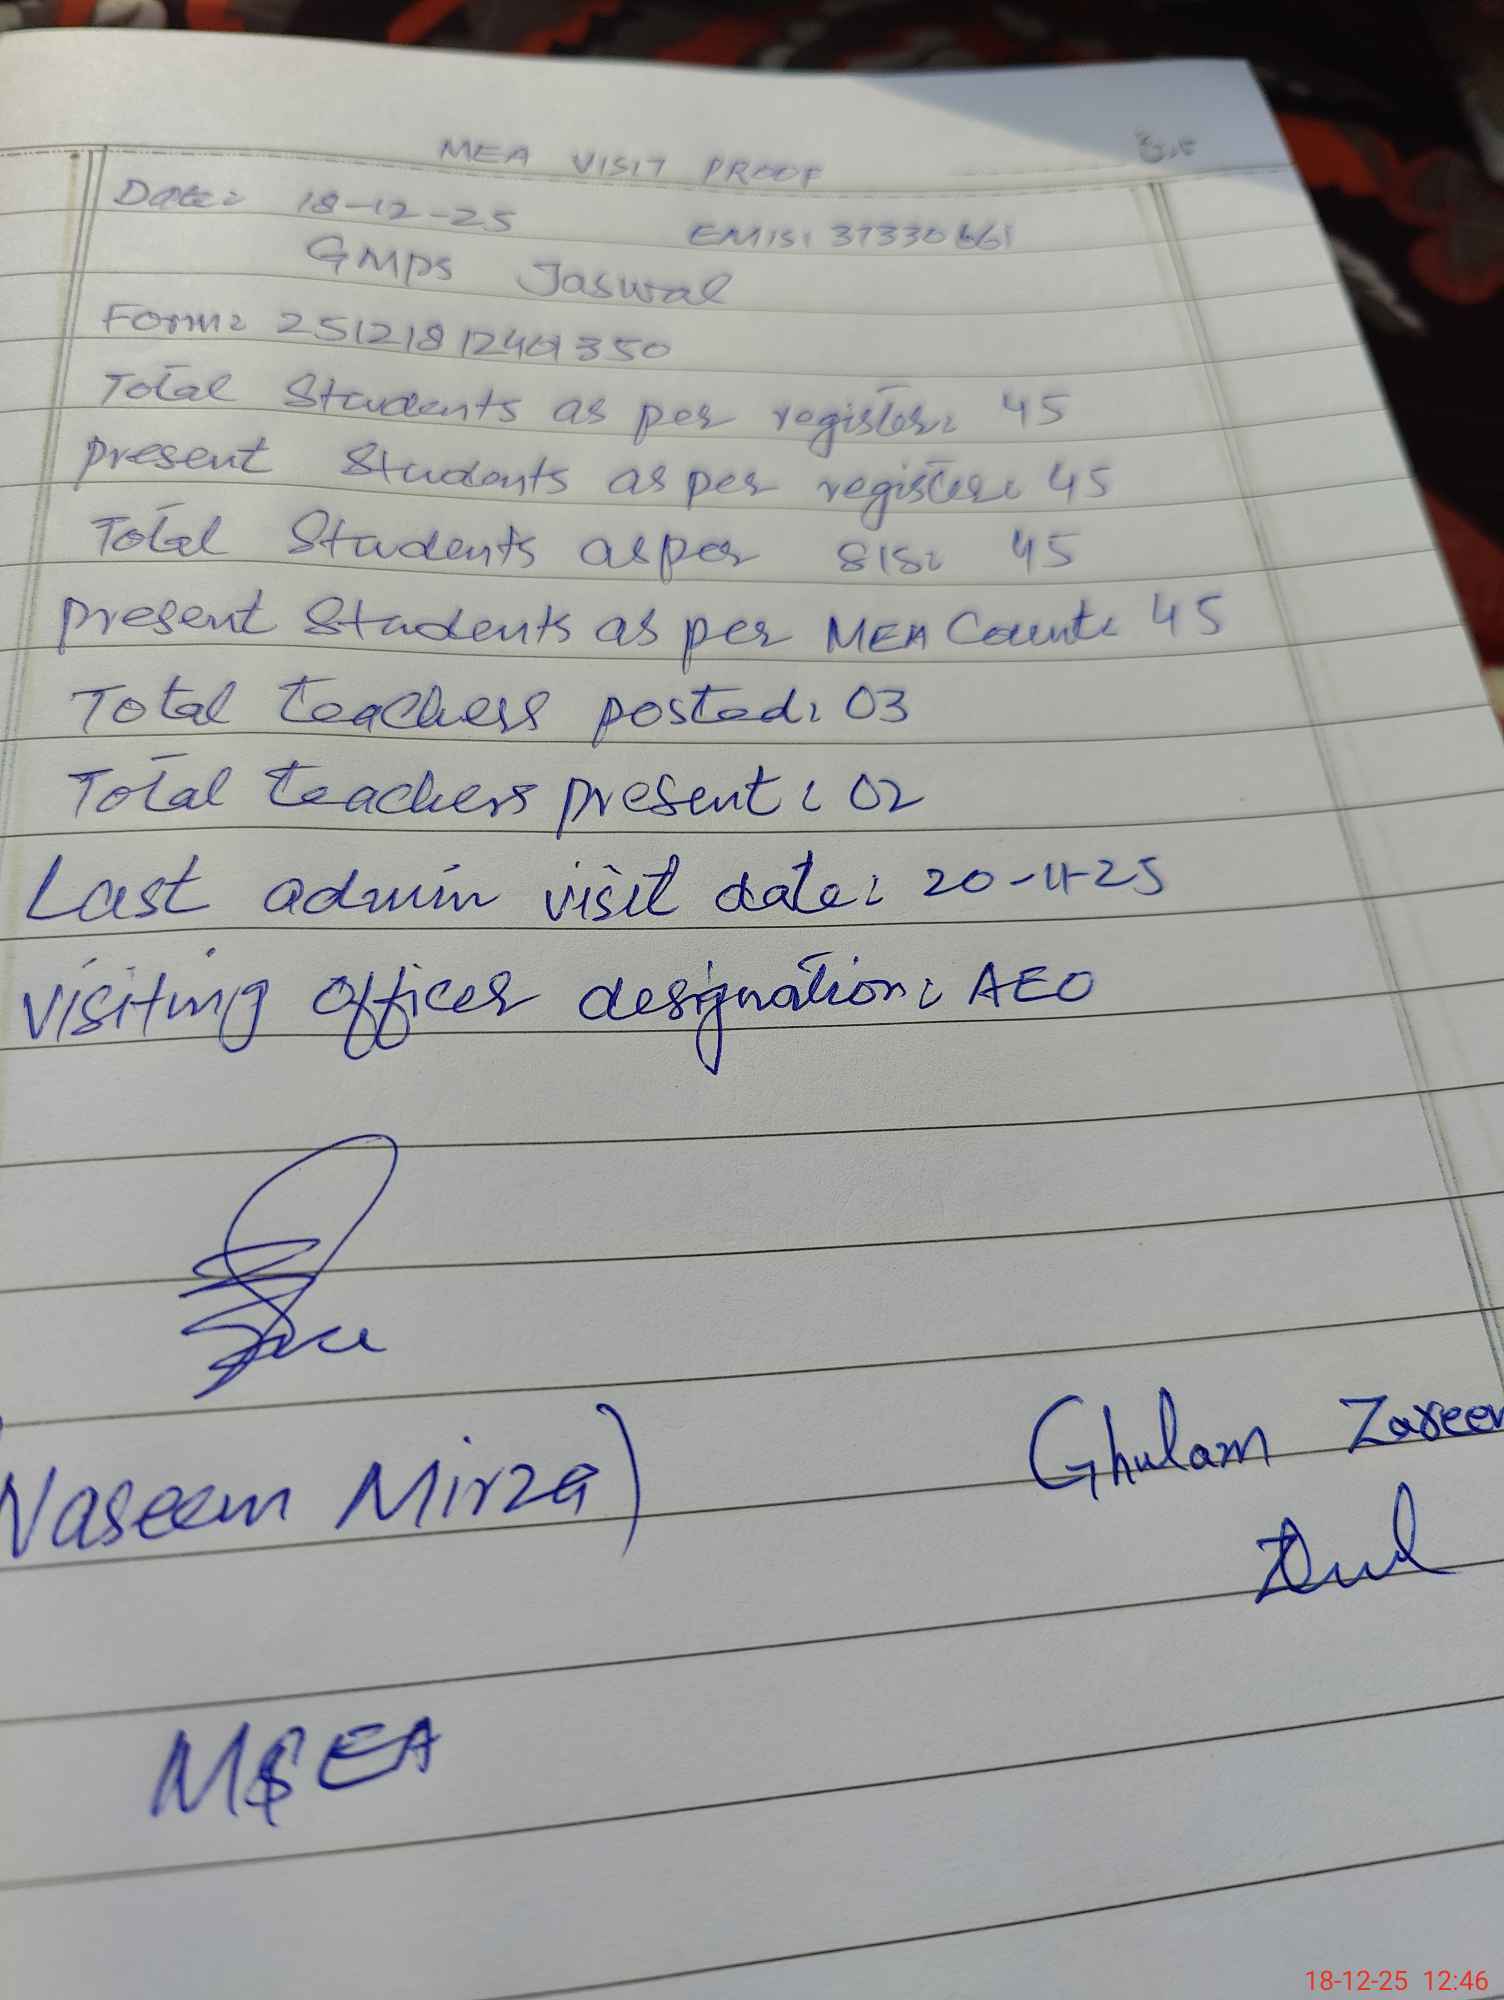 MEA VISIT PROOF
Date: 18-12-25 EMIS: 37330661
GMPS Jaswal
Form: 2512181240350
Total Students as per register: 45
Present Students as per register: 45
Total Students as per SIS: 45
Present Students as per MEA Count: 45
Total teachers posted: 03
Total teachers present: 02
Last admin visit date: 20-11-25
Visiting officer designation: AEO
Ghulam Zareen
Naseem Mirza)
MSEA
18-12-25 12:46